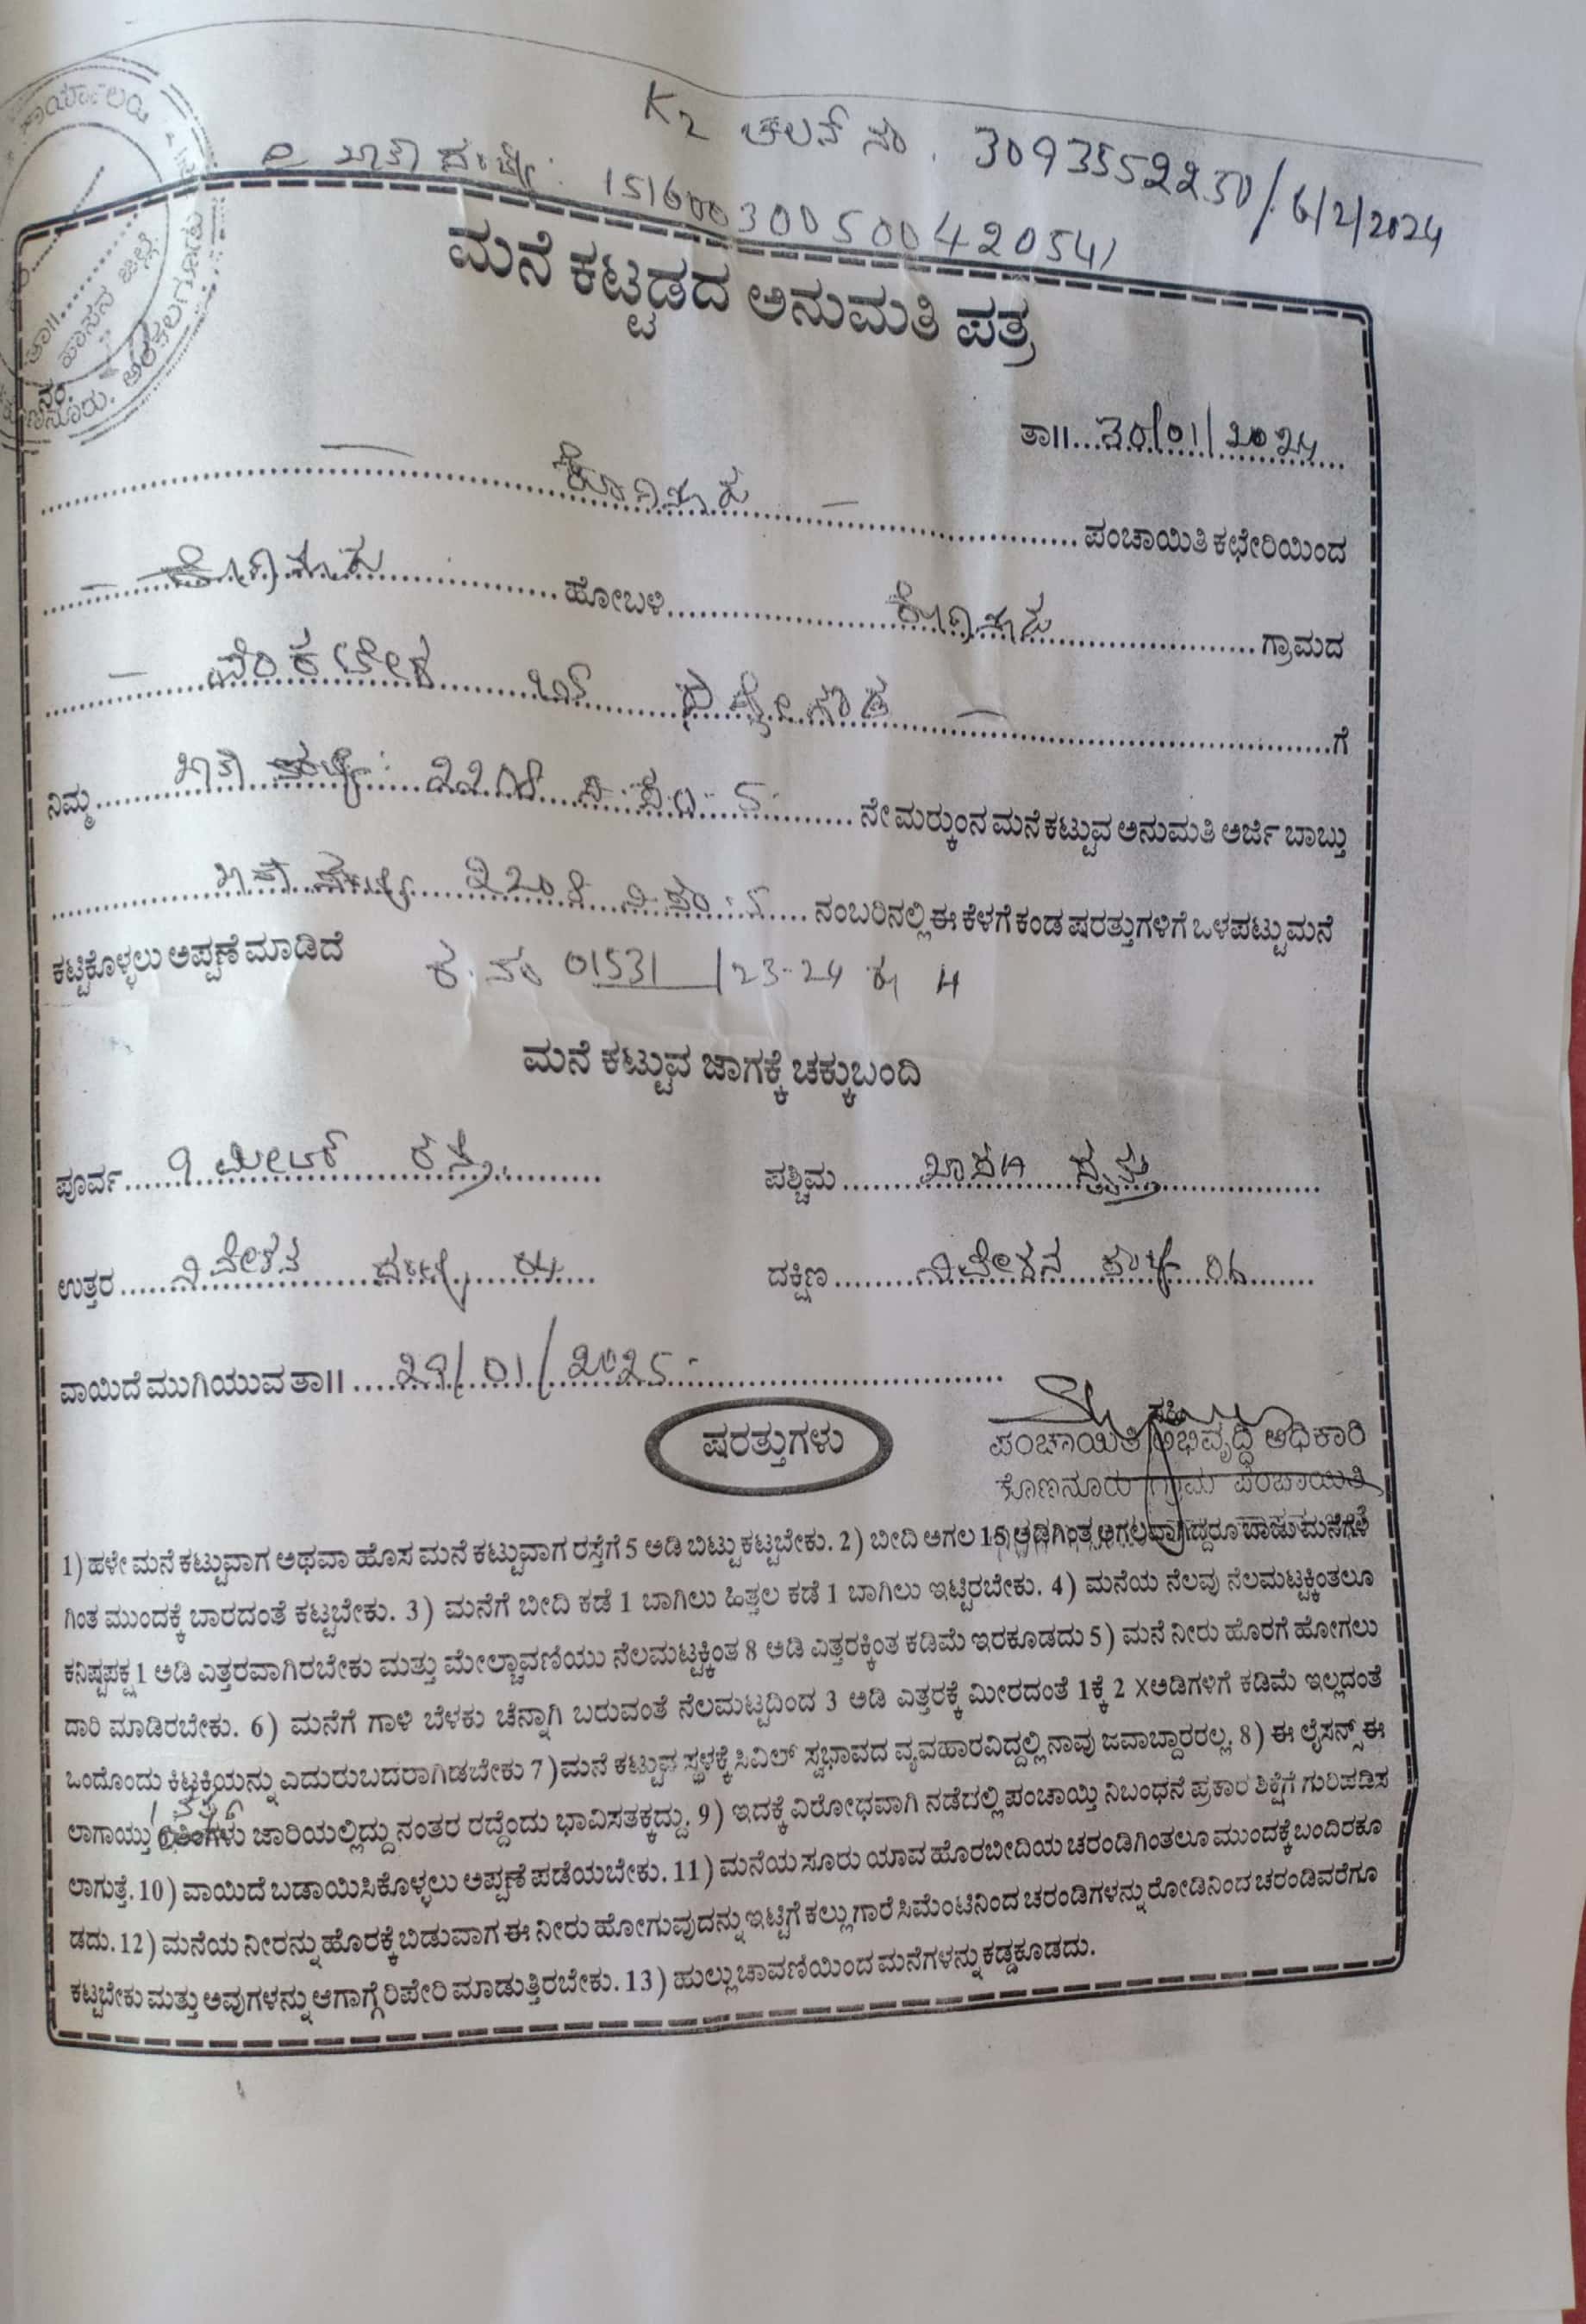 K2 ಚಲನ್ ನಂ. 3093552230/. 6/2/2024
ಇ ಖಾತೆ ಸಂಖ್ಯೆ: 151600300500420541
ಮನೆ ಕಟ್ಟಡದ ಅನುಮತಿ ಪತ್ರ
ನಂ.
ತಾ॥...30/01/2024
ಪಂಚಾಯಿತಿ ಕಛೇರಿಯಿಂದ
ಹೋಬಳಿ ಗ್ರಾಮದ
ವೆಂಕಟೇಶ ಬಿನ್ ಗೆ
ನಿಮ್ಮ ಖಾತೆ ಸಂಖ್ಯೆ: 2208 ನಿ.ಸಂ: 5 ನೇ ಮರ‍್ಕುಂನ ಮನೆ ಕಟ್ಟುವ ಅನುಮತಿ ಅರ್ಜಿ ಬಾಬ್ತು
ಖಾತೆ ಸಂಖ್ಯೆ 2208 ನಿ.ಸಂ: 5 ನಂಬರಿನಲ್ಲಿ ಈ ಕೆಳಗೆ ಕಂಡ ಷರತ್ತುಗಳಿಗೆ ಒಳಪಟ್ಟು ಮನೆ
ಕಟ್ಟಿಕೊಳ್ಳಲು ಅಪ್ಪಣೆ ಮಾಡಿದೆ ಕ.ಸಂ 01531 /23-24
ಮನೆ ಕಟ್ಟುವ ಜಾಗಕ್ಕೆ ಚಕ್ಕುಬಂದಿ
ಪೂರ್ವ 9 ಮೀಟರ್ ರಸ್ತೆ ಪಶ್ಚಿಮ
ಉತ್ತರ ನಿವೇಶನ ಸಂಖ್ಯೆ 04 ದಕ್ಷಿಣ ನಿವೇಶನ ಸಂಖ್ಯೆ 06
ವಾಯಿದೆ ಮುಗಿಯುವ ತಾ॥ 29/01/2025
ಷರತ್ತುಗಳು
ಸಹಿ
ಪಂಚಾಯಿತಿ ಅಭಿವೃದ್ಧಿ ಅಧಿಕಾರಿ
ಕೊಣನೂರು ಗ್ರಾಮ ಪಂಚಾಯಿತಿ
1) ಹಳೇ ಮನೆ ಕಟ್ಟುವಾಗ ಅಥವಾ ಹೊಸ ಮನೆ ಕಟ್ಟುವಾಗ ರಸ್ತೆಗೆ 5 ಅಡಿ ಬಿಟ್ಟು ಕಟ್ಟಬೇಕು. 2) ಬೀದಿ ಅಗಲ 15 ಅಡಿಗಿಂತ ಅಗಲವಾಗಿದ್ದರೂ ಬಾಜು ಮನೆಗಳಿ
ಗಿಂತ ಮುಂದಕ್ಕೆ ಬಾರದಂತೆ ಕಟ್ಟಬೇಕು. 3) ಮನೆಗೆ ಬೀದಿ ಕಡೆ 1 ಬಾಗಿಲು ಹಿತ್ತಲ ಕಡೆ 1 ಬಾಗಿಲು ಇಟ್ಟಿರಬೇಕು. 4) ಮನೆಯ ನೆಲವು ನೆಲಮಟ್ಟಕ್ಕಿಂತಲೂ
ಕನಿಷ್ಟಪಕ್ಷ 1 ಅಡಿ ಎತ್ತರವಾಗಿರಬೇಕು ಮತ್ತು ಮೇಲ್ಚಾವಣಿಯು ನೆಲಮಟ್ಟಕ್ಕಿಂತ 8 ಅಡಿ ಎತ್ತರಕ್ಕಿಂತ ಕಡಿಮೆ ಇರಕೂಡದು 5) ಮನೆ ನೀರು ಹೊರಗೆ ಹೋಗಲು
ದಾರಿ ಮಾಡಿರಬೇಕು. 6) ಮನೆಗೆ ಗಾಳಿ ಬೆಳಕು ಚೆನ್ನಾಗಿ ಬರುವಂತೆ ನೆಲಮಟ್ಟದಿಂದ 3 ಅಡಿ ಎತ್ತರಕ್ಕೆ ಮೀರದಂತೆ 1ಕ್ಕೆ 2 Xಅಡಿಗಳಿಗೆ ಕಡಿಮೆ ಇಲ್ಲದಂತೆ
ಒಂದೊಂದು ಕಿಟಕಿಯನ್ನು ಎದುರುಬದರಾಗಿಡಬೇಕು 7)ಮನೆ ಕಟ್ಟುವ ಸ್ಥಳಕ್ಕೆ ಸಿವಿಲ್ ಸ್ವಭಾವದ ವ್ಯವಹಾರವಿದ್ದಲ್ಲಿ ನಾವು ಜವಾಬ್ದಾರರಲ್ಲ. 8) ಈ ಲೈಸನ್ಸ್ ಈ
ಲಾಗಾಯ್ತು 1 ವರ್ಷ 6 ತಿಂಗಳು ಜಾರಿಯಲ್ಲಿದ್ದು ನಂತರ ರದ್ದೆಂದು ಭಾವಿಸತಕ್ಕದ್ದು. 9) ಇದಕ್ಕೆ ವಿರೋಧವಾಗಿ ನಡೆದಲ್ಲಿ ಪಂಚಾಯ್ತಿ ನಿಬಂಧನೆ ಪ್ರಕಾರ ಶಿಕ್ಷೆಗೆ ಗುರಿಪಡಿಸ
ಲಾಗುತ್ತೆ. 10) ವಾಯಿದೆ ಬಡಾಯಿಸಿಕೊಳ್ಳಲು ಅಪ್ಪಣೆ ಪಡೆಯಬೇಕು. 11) ಮನೆಯ ಸೂರು ಯಾವ ಹೊರಬೀದಿಯ ಚರಂಡಿಗಿಂತಲೂ ಮುಂದಕ್ಕೆ ಬಂದಿರಕೂ
ಡದು. 12) ಮನೆಯ ನೀರನ್ನು ಹೊರಕ್ಕೆ ಬಿಡುವಾಗ ಈ ನೀರು ಹೋಗುವುದನ್ನು ಇಟ್ಟಿಗೆ ಕಲ್ಲು ಗಾರೆ ಸಿಮೆಂಟಿನಿಂದ ಚರಂಡಿಗಳನ್ನು ರೋಡಿನಿಂದ ಚರಂಡಿವರೆಗೂ
ಕಟ್ಟಬೇಕು ಮತ್ತು ಅವುಗಳನ್ನು ಆಗಾಗ್ಗೆ ರಿಪೇರಿ ಮಾಡುತ್ತಿರಬೇಕು. 13) ಹುಲ್ಲು ಚಾವಣಿಯಿಂದ ಮನೆಗಳನ್ನು ಕಡ್ಡಕೂಡದು.